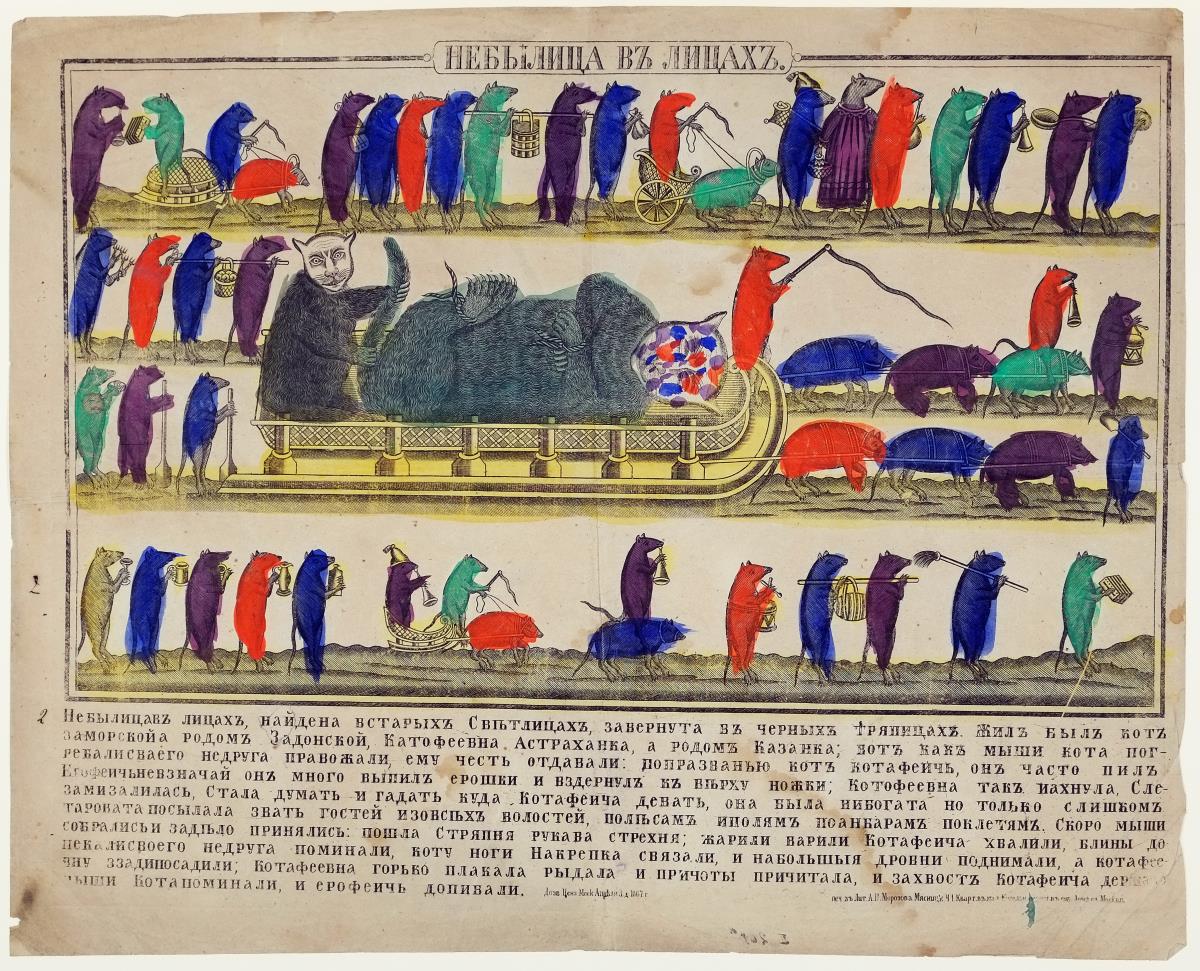 НЕБЫЛИЦА ВЪ ЛИЦАХЪ.
2 НЕБЫЛИЦАВЪ ЛИЦАХЪ, НАЙДЕНА ВСТАРЫХЪ СВѢТЛИЦАХЪ, ЗАВЕРНУТА ВЪ ЧЕРНЫХЪ ТРЯПИЦАХЪ. ЖИЛЪ БЫЛЪ КОТЪ
ЗАМОРСКОЙА РОДОМЪ ЗАДОНСКОЙ, КАТОФЕЕВНА АСТРАХАНКА, А РОДОМЪ КАЗАНКА; ВОТЪ КАКЪ МЫШИ КОТА ПОГ-
РЕБАЛИСВАЕГО НЕДРУГА ПРАВОЖАЛИ, ЕМУ ЧЕСТЬ ОТДАВАЛИ: ПОПРАЗВАНЬЮ КОТЪ КОТАФЕИЧЬ, ОНЪ ЧАСТО ПИЛЪ
ЕРОФЕИЧЬНЕВЗНАЧАЙ ОНЪ МНОГО ВЫПИЛЪ ЕРОШКИ И ВЗДЕРНУЛЪ КЪ ВѢРХУ НОЖКИ; КОТОФЕЕВНА ТАКЪ ИАХНУЛА, СЛЕ-
ЗАМИЗАЛИЛАСЬ, СТАЛА ДУМАТЬ И ГАДАТЬ КУДА КОТАФЕИЧА ДЕВАТЬ, ОНА БЫЛА НИБОГАТА НО ТОЛЬКО СЛИШКОМЪ
ТАРОВАТА ПОСЫЛАЛА ЗВАТЬ ГОСТЕЙ ИЗОВСѢХЪ ВОЛОСТЕЙ, ПОЛѢСАМЪ ИПОЛЯМЪ ПОАНБАРАМЪ ПОКЛЕТЯМЪ. СКОРО МЫШИ
СОБРАЛИСЬИ ЗАДѢЛО ПРИНЯЛИСЬ: ПОШЛА СТРЯПНЯ РУКАВА СТРЕХНЯ; ЖАРИЛИ ВАРИЛИ КОТАФЕИЧА ХВАЛИЛИ, БЛИНЫ ДО
ПЕКАЛИСВОЕГО НЕДРУГА ПОМИНАЛИ, КОТУ НОГИ НАКРЕПКА СВЯЗАЛИ, И НАБОЛЬШЫЯ ДРОВНИ ПОДНИМАЛИ, А КОТАФЕЕ-
ВНУ ЗЗАДИПОСАДИЛИ; КОТАФЕЕВНА ГОРЬКО ПЛАКАЛА РЫДАЛА И ПРИЧОТЫ ПРИЧИТАЛА, И ЗАХВОСТЪ КОТАФЕИЧА
МЫШИ КОТАПОМИНАЛИ, И ЕРОФЕИЧЬ ДОПИВАЛИ. Дозв. Ценз. Моск. 1867 г. печ. въ Лит. А.В. Морозова, Мясниц. Ч. 1 Кварт.